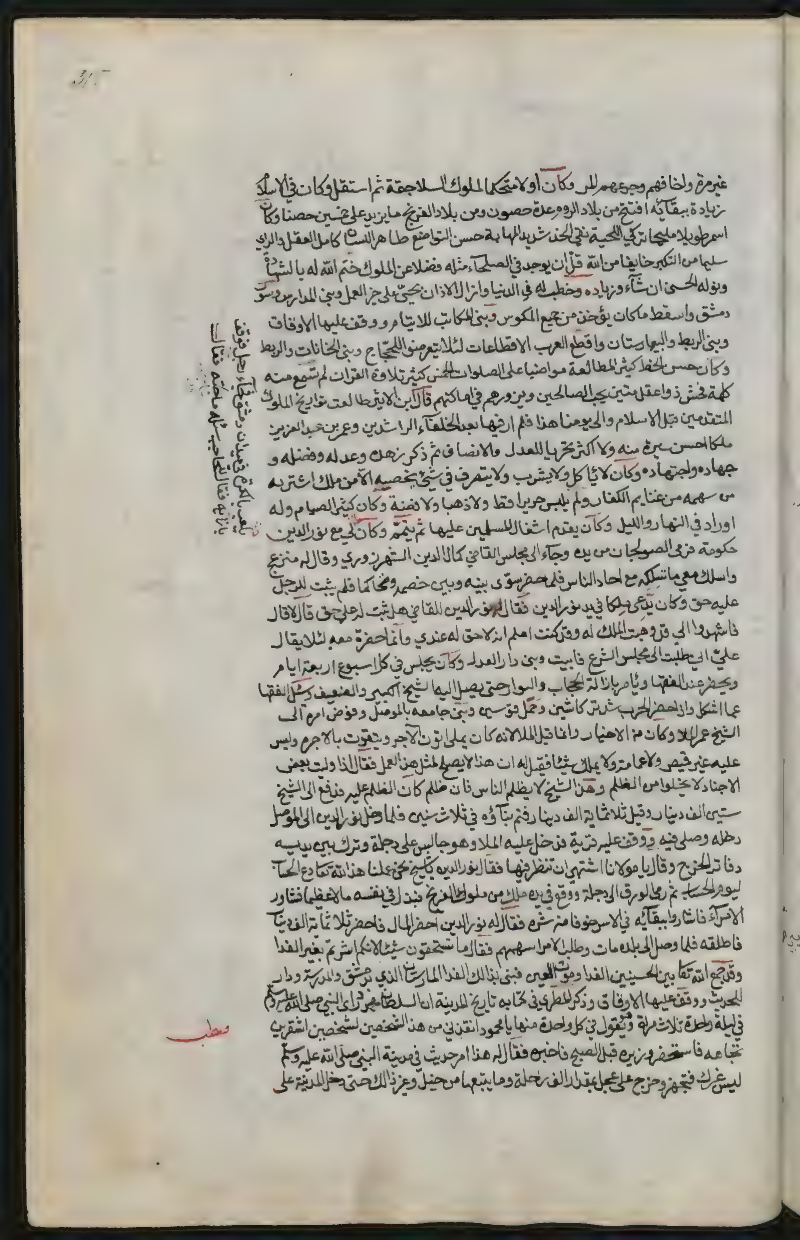 غير مرة واخافهم وجرعهم المر وكان أولا متحكما لملوك السلاجقة ثم استقل وكان في الاسلا
زيادة ببقائه افتتح من بلاد الروم عدة حصون ومن بلاد الفرنج ما يزيد على خمسين حصنا وكان
اسمر طويلا مليحا تركي اللحية نقي الخد شديد المهابة حسن التواضع طاهر اللسان كامل العقل والراي
سليما من التكبر خايفا من الله قل ان يوجد في الصلحاء مثله فضلا عن الملوك ختم الله له بالشهادة
ونوله الحسنى ان شاء وزياده وخطب له في الدنيا وازال الاذان بحي على خير العمل وبنى المدارس وسور
دمشق واسقط ما كان يؤخذ من جميع المكوس وبنى المكاتب للايتام ووقف عليها الاوقاف
وبنى الربط والبيمارستان واقطع العرب الاقطاعات لئلا يتعرضوا للحجاج وبنى الخانات والربط
وكان حسن الخط كثير المطالعة مواضبا على الصلوات الخمس كثير تلاوة القران لم تسمع منه
كلمة فحش ذو عقل متين يحب الصالحين ويزورهم في اماكنهم قال ابن الاثير طالعت تواريخ الملوك
المتقدمين قبل الاسلام والى يومنا هذا فلم ار فيها بعد الخلفاء الراشدين وعمر بن عبد العزيز
ملكا احسن سيرة منه ولا اكثر تحريا للعدل والانصاف ثم ذكر زهده وعدله وفضله و
جهاده واجتهاده وكان لا ياكل ولا يشرب ولا يتصرف في شئ يخصه الا من ملك اشتريه
من سهمه من غنايم الكفار ولم يلبس حريرا قط ولا ذهبا ولا فضة وكان كثير الصيام وله
اوراد في النهار والليل وكان يقدم اشغال المسلمين عليها ثم يتمم وكان لي مع نور الدين
حكومة فرمى الصولجان من يده وجاء الى مجلس القاضي كمال الدين الشهرزوري وقال له
واسلك معي ما تسلكه مع احاد الناس فلما حضر سوى بينه وبين خصمه وتحاكما فلم يثبت للرجل
عليه حق وكان يدعي ملكا في يد نور الدين فقال نور الدين للقاضي هل ثبت له علي حق قال لا قال
فاشهدوا اني قد وهبت الملك له وقد كنت اعلم انه لا حق له عندي وانما حضرت معه لئلا يقال
علي اني طلبت الى مجلس الشرع فابيت وبنى دار العدل وكان يجلس في كل اسبوع اربعة ايام
ويحضر عنده الفقها ويأمر بازالة الحجاب والبواب حتى يصل اليه الشيخ الكبير والضعيف ويسئل الفقها
عما اشكل واذا حضر الحرب شد تركاشين وحمل قوسين وبنى جامعه بالموصل وفوض امره الى
الشيخ عمر الملا وكان من الاخيار وانما قيل الملا لانه كان يملي اتون الآجر ويتقوت بالاجره وليس
عليه غير قميص ولا عمامة ولا يملك شيئا فقيل له ان هذا لا يصلح لمثل هذا العمل فقال اذا وليت بعض
الاجناد لا يخلوا من الظلم وهذا الشيخ لا يظلم الناس فان ظلم كان الظلم عليه فدفع الى الشيخ
ستين الف دينار وقيل ثلاثماية الف دينار فتم بناؤه في ثلاث سنين فلما دخل نور الدين الى الموصل
دخله وصلى فيه ووقف عليه قرية فدخل عليه الملا وهو جالس على دجلة وترك بين يديه
دفاتر الخرج وقال يا مولانا اشتهي ان تنظر فيها فقال نور الدين يا شيخ نحن عملنا هذا لله تعالى دع الحساب
ليوم الحساب ثم رمى الورق الى دجلة ووقع في يده ملك من ملوك الفرنج فبذل في نفسه مالا عظيما فشاور
الامراء فاشاروا ببقائه في الاسر خوفا من شره فقال له نور الدين احضر المال فاحضر ثلاثماية الف دينار
فاطلقه فلما وصل الى بلده مات وطلب الامراء سهمهم فقال ما تستحقون شيئا لانكم اشرتم بغير الفدا
وقد جمع الله تعالى بين الحسنيين الفدا وموت اللعين فبنى بذلك الفدا المارستان الذي بدمشق والمدرسة ودار
الحديث ووقف عليها الاوقاف وذكر المطري في كتابه تاريخ المدينة ان السلطان محمود راى النبي صلى الله عليه وسلم
في ليلة واحدة ثلاث مرات وهو يقول في كل واحدة منها يا محمود انقذني من هذا الشخصين لشخصين اشقرين
تجاهه فاستحضر وزيره قبل الصبح فاخبره فقال له هذا امر حدث في مدينة النبي صلى الله عليه وسلم
ليس غيرك فتجهز وخرج على عجل بمقدار الف راحلة وما يتبعها من خيل وغير ذلك حتى دخل المدينة على
يلعب بالكرة في ميدان دمشق فجاءه رجل فوقف
بازائه فقال للحاجب سله ما حاجته فقال
مطلب